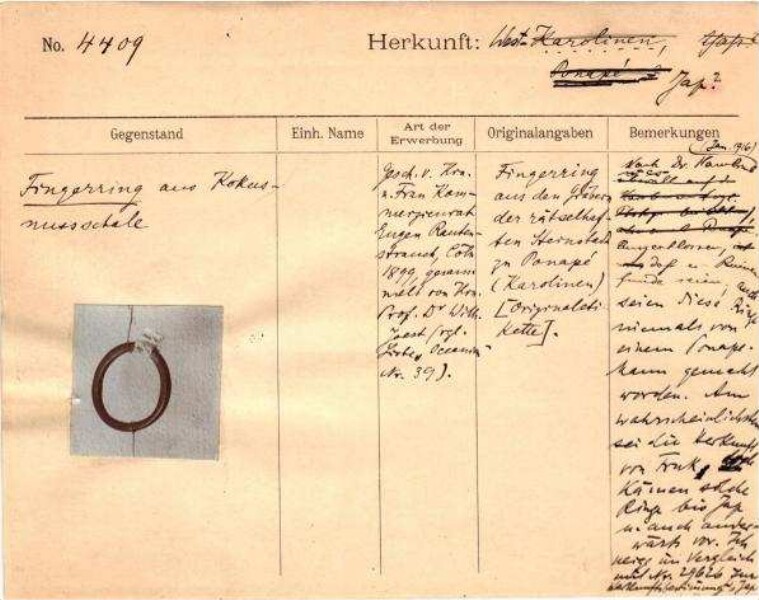 No. 4409
Herkunft: West-Karolinen, Jap?
Ponapé ? Jap?
Gegenstand
Einh. Name
Art der
Erwerbung
Originalangaben
Bemerkungen
Fingerring aus Kokus-
nussschale
Gesch. v. Hrn.
u. Frau Kom-
merzienrat
Eugen Rauten-
strauch, Cöln
1899, gesam-
melt von Hrn.
Prof. Dr Wilh.
Joest (vgl.
Liste, Oceanien
Nr. 39).
Fingerring
aus den Gräbern
der rätselhaf-
ten Steinstadt
zu Ponapé
(Karolinen)
[Originaleti-
kette].
(Jan. 1916)
Nach Dr. Hambruch
ausgeschlossen,
daß es Ruinen-
funde seien, auch
seien diese Ringe
niemals von
einem Ponape-
mann gemacht
worden. Am
wahrscheinlichsten
sei die Herkunft
von Truk,
kämen solche
Ringe bis Jap
u. auch ander-
wärts vor. Ich
neige im Vergleich
mit Nr. 29626 zur
Herkunftsbestimmung: Jap